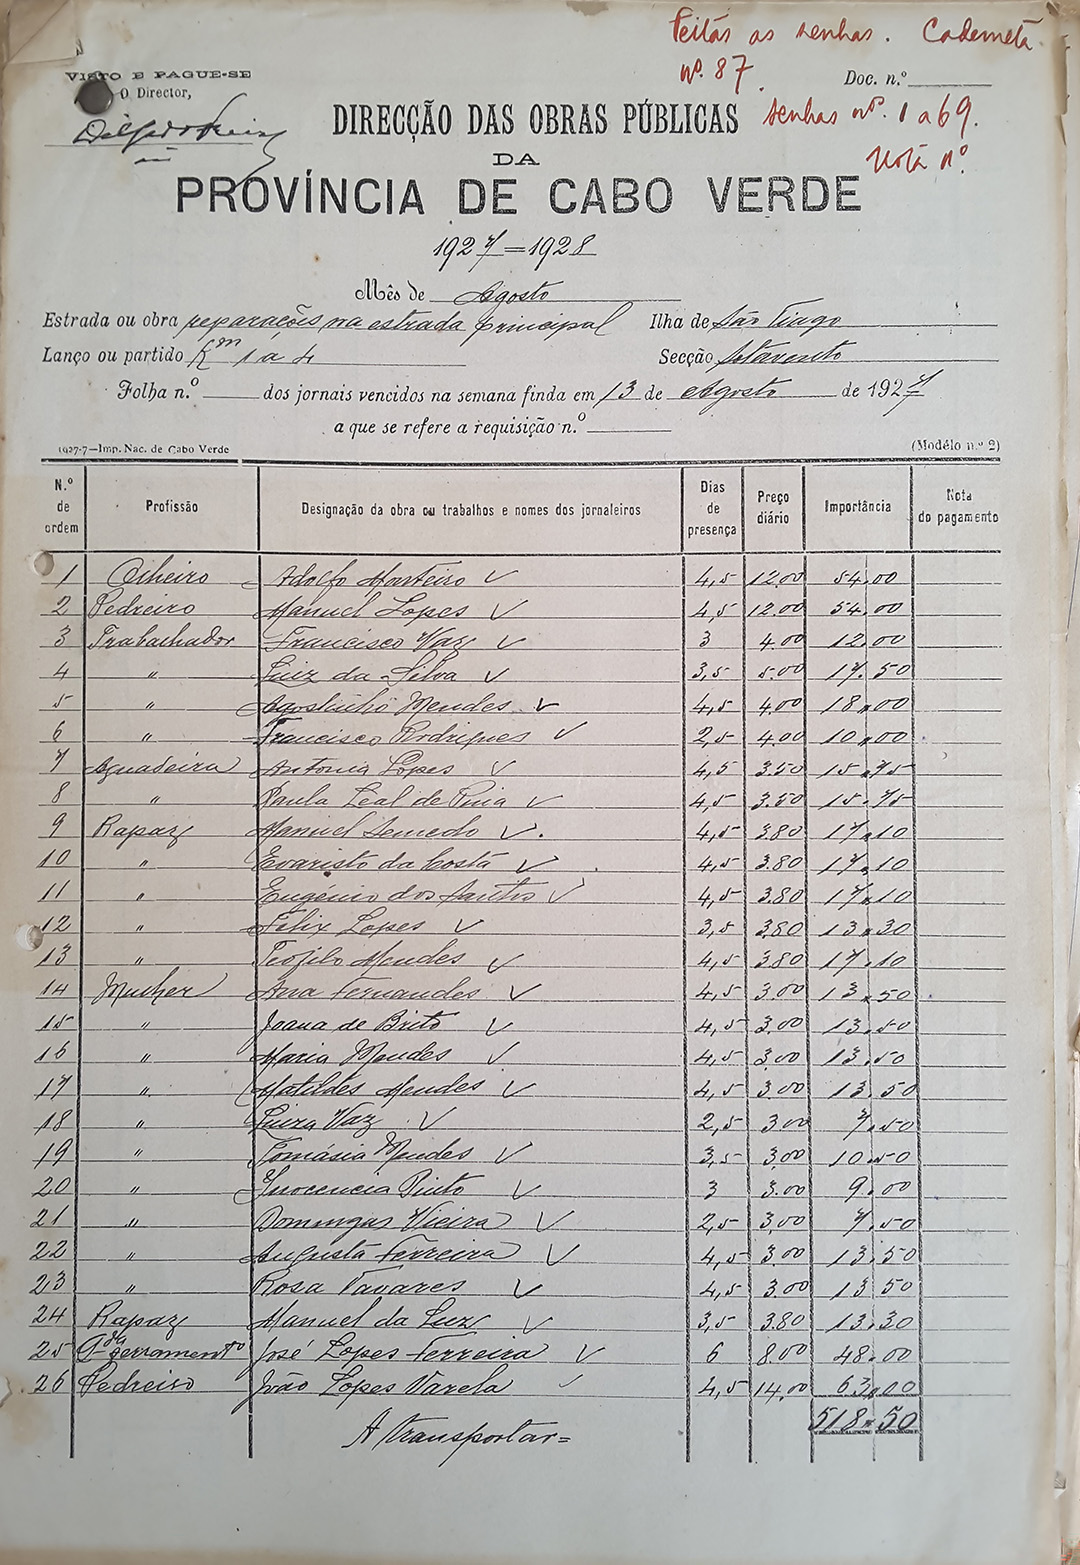 Feitas as senhas. Caderneta
nº. 87
VISTO E PAGUE-SE
O Director,
Doc. n.º
senhas nºs. 1 a 69.
DIRECÇÃO DAS OBRAS PÚBLICAS
DA
Nota nº
PROVÍNCIA DE CABO VERDE
1927=1928
Mês de Agosto
Estrada ou obra reparações na estrada principal Ilha de São Tiago
Lanço ou partido Km 1 a 4 Secção Sotavento
Folha n.º dos jornais vencidos na semana finda em 13 de Agosto de 1927
a que se refere a requisição n.º
1927-7—Imp. Nac. de Cabo Verde (Modêlo n.º 2)
N.º de ordem Profissão Designação da obra ou trabalhos e nomes dos jornaleiros Dias de presença Preço diário Importância Nota do pagamento
1 Olheiro Adolfo Monteiro V 4,5 12.00 54.00
2 Pedreiro Manuel Lopes V 4,5 12.00 54.00
3 Trabalhador Francisco Vaz V 3 4.00 12.00
4 " Luiz da Silva V 3,5 5.00 17.50
5 " Agostinho Mendes V 4,5 4.00 18.00
6 " Francisco Rodrigues V 2,5 4.00 10.00
7 Aguadeira Antonia Lopes V 4,5 3.50 15.75
8 " Paula Leal de Pina V 4,5 3.50 15.75
9 Rapaz Manuel Semedo V. 4,5 3.80 17.10
10 " Evaristo da Costa V 4,5 3.80 17.10
11 " Eugénio dos Santos V 4,5 3.80 17.10
12 " Felix Lopes V 3,5 3.80 13.30
13 " Teofilo Mendes V 4,5 3.80 17.10
14 Mulher Ana Fernandes V 4,5 3.00 13.50
15 " Joana de Brito V 4,5 3.00 13.50
16 " Maria Mendes V 4,5 3.00 13.50
17 " Matildes Mendes V 4,5 3.00 13.50
18 " Luiza Vaz V 2,5 3.00 7.50
19 " Tomásia Mendes V 3,5 3.00 10.50
20 " Inocencia Pinto V 3 3.00 9.00
21 " Domingas Vieira V 2,5 3.00 7.50
22 " Augusta Ferreira V 4,5 3.00 13.50
23 " Rosa Tavares V 4,5 3.00 13.50
24 Rapaz Manuel da Luz V 3,5 3.80 13.30
25 José Lopes Ferreira V 6 8.00 48.00
26 Pedreiro João Lopes Varela V 4,5 14.00 63.00
A transportar= 518.50